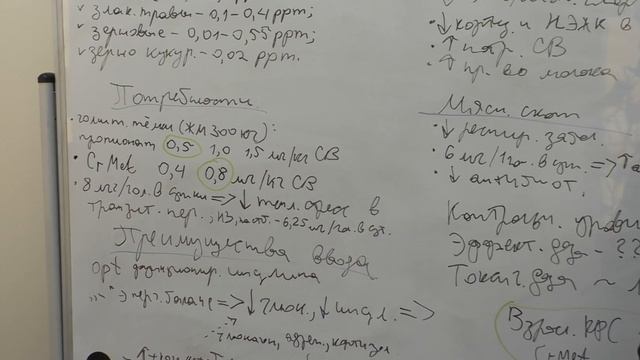 злак. травы – 0,1 – 0,4 ppm;
зерновые – 0,01 – 0,55 ppm;
зерно кукур. – 0,02 ppm.
Потребности
голшт. тёлки (ЖМ 300 кг):
пропионат 0,5 1,0 1,5 мг/кг СВ
CrMet 0,4 0,8 мг/кг СВ
8 мг/гол. в сутки => ↓ тепл. стресс в
транзит. пер., – 6,25 мг/гол. в сут.
Преимущества ввода
opt функционир. инсулина
энерг. балансе => ↓ глюк., ↓ инсул. =>
глюкагон, адрен., кортизол
↓ кортиз. и НЭЖК в
↑ потр. СВ
↑ пр. во молока
Мясн. скот
↓ респир. забол.
6 мг/гол. в сут. => ↑
↓ антибиот.
Контрольн. уравн
Эффект. доза – ??
Токсич. доза ~
Взросл. КРС
CrMet